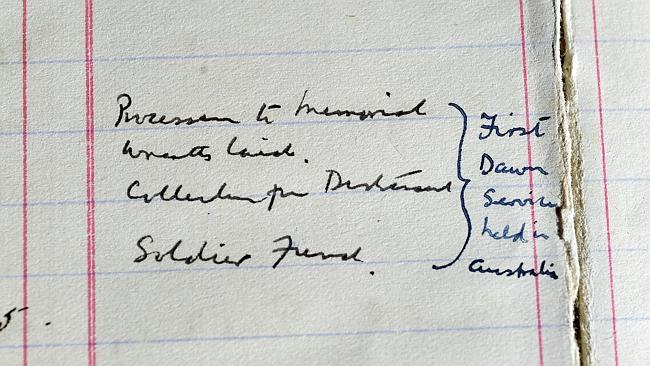 Procession to Memorial
Wreaths laid.
Collection for Distressed
Soldier Fund.
First
Dawn
Service
held in
Australia
5.